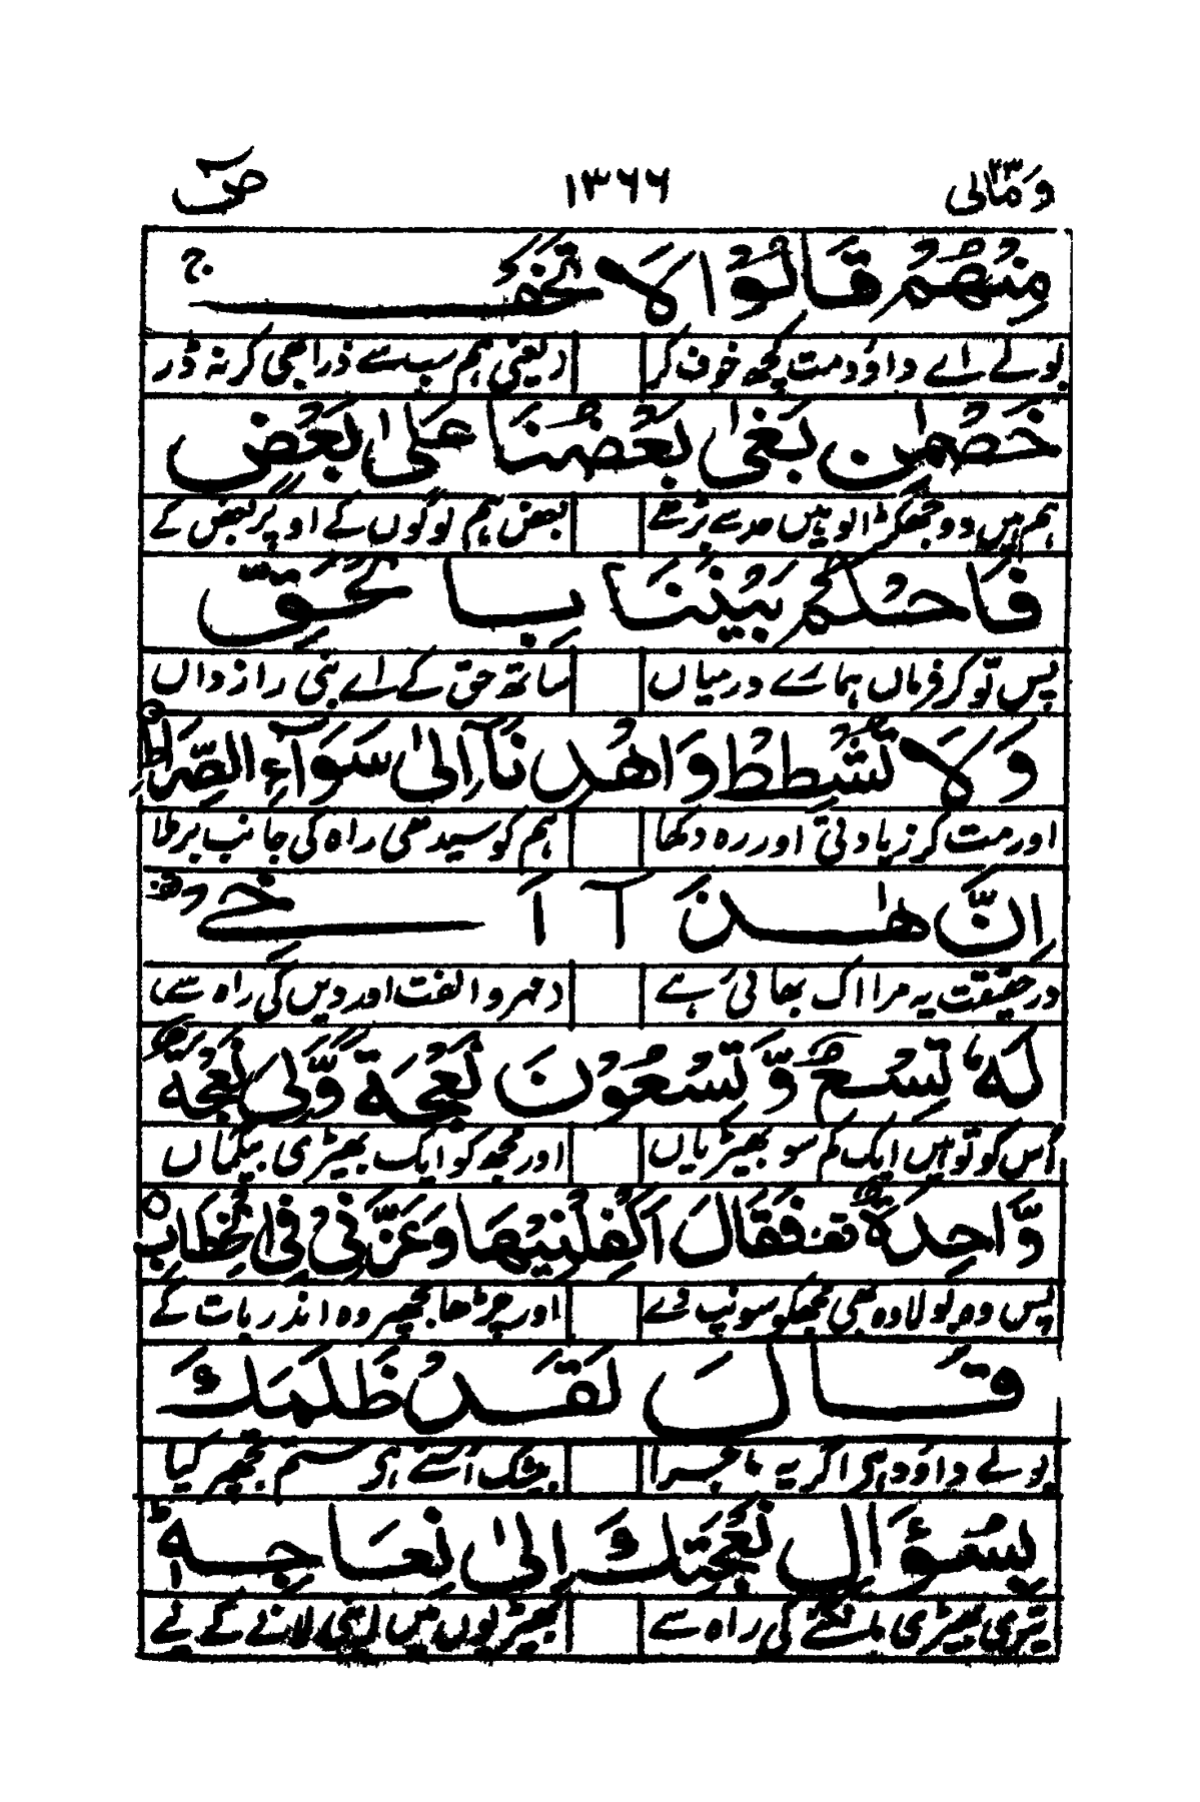 ومالی ۲۳ ۱۳۶۶ صٓ
مِنْهُمْ قَالُوْا لَا تَخَفْ ج
بولے اے داؤد مت کچھ خوف کر (یعنی ہم سب سے ذرا بھی کر نہ ڈر
خَصْمٰنِ بَغٰى بَعْضُنَا عَلٰى بَعْضٍ
ہم ہیں دو جھگڑالو ہیں حد سے بڑھے بعض ہم لوگوں کے اوپر بعض کے
فَاحْكُمْ بَيْنَنَا بِالْحَقِّ
پس تو کر فرماں ہمارے درمیاں ساتھ حق کے اے نبی راز داں
وَلَا تُشْطِطْ وَاهْدِنَآ اِلٰى سَوَآءِ الصِّرَاطِ ○
اور مت کر زیادتی اور رہ دکھا ہم کو سیدھی راہ کی جانب برملا
اِنَّ هٰذَآ اَخِيْ
در حقیقت یہ مرا اک بھائی ہے (مہر و الفت اور دیں کی راہ سے)
لَهٗ تِسْعٌ وَّتِسْعُوْنَ نَعْجَةً وَّلِيَ نَعْجَةٌ
اُس کو تو ہیں ایک کم سو بھیڑیاں اور مجھ کو ایک بھیڑی بیگماں
وَّاحِدَةٌ فَقَالَ اَكْفِلْنِيْهَا وَعَزَّنِيْ فِى الْخِطَابِ ○
پس وہ بولا وہ بھی مجھکو سونپ دے اور چڑھا مجھپر وہ اندر بات کے
قَالَ لَقَدْ ظَلَمَكَ
بولے داؤد ہی اگر یہ ماجرا بیشک اُسنے ہی ستم تجھپر کیا
بِسُؤَالِ نَعْجَتِكَ اِلٰى نِعَاجِهٖ ط
تیری بھیڑی مانگنے کی راہ سے بھیڑیوں میں اپنی لانے کے لیے